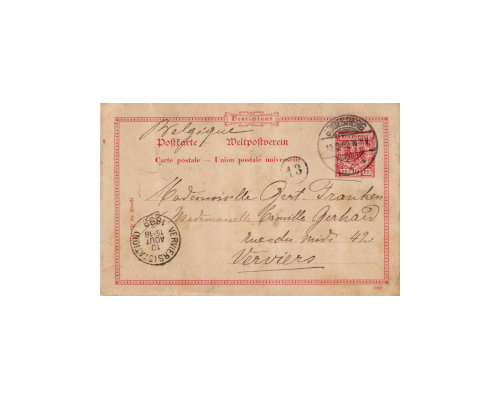 Deutschland
Belgique
Postkarte Weltpostverein
Carte postale — Union postale universelle
13
Mademoiselle Bert. Franken
Mademoiselle Camille Gerhard
rue du midi 42
Verviers
VERVIERS (STATION)
10
AOUT
15-16